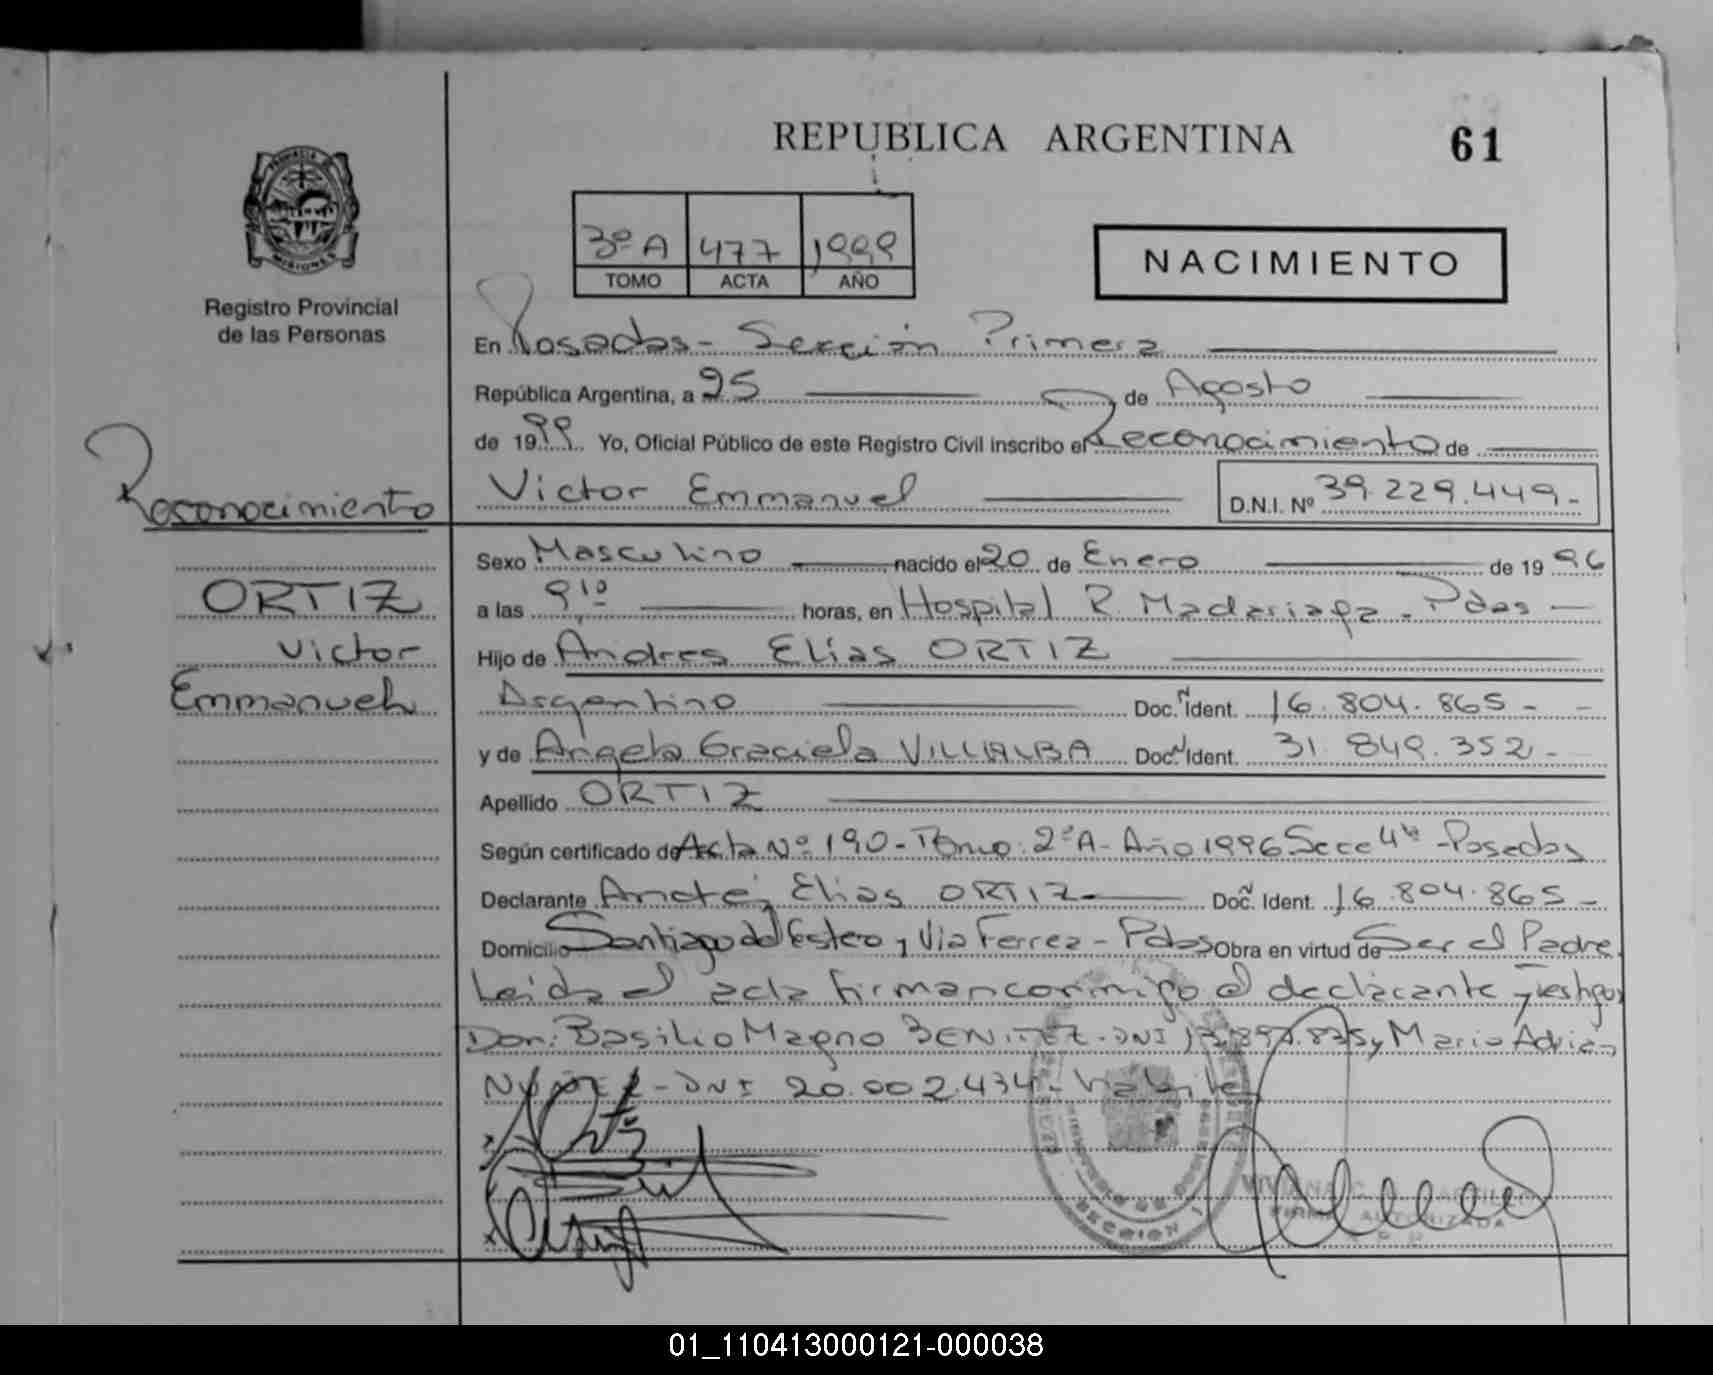 REPUBLICA ARGENTINA
61
3º A 477 1999
TOMO ACTA AÑO
NACIMIENTO
PROVINCIA DE
MISIONES
Registro Provincial
de las Personas
En Posadas - Sección Primera
República Argentina, a 25 de Agosto
de 1999 Yo, Oficial Público de este Registro Civil inscribo el Reconocimiento de
Victor Emmanuel D.N.I. Nº 39.229.449-
Reconocimiento
ORTIZ
Victor
Emmanuel
Sexo Masculino nacido el 20 de Enero de 1996
a las 9 10 horas, en Hospital R. Madariaga - Pdas
Hijo de Andres Elias ORTIZ
Argentino Doc. N Ident. 16.804.865 -
y de Angela Graciela VILLALBA Doc. N Ident. 31.849.352 -
Apellido ORTIZ
Según certificado de Acta Nº 190 - Tomo: 2º A - Año 1996 Secc 4ta - Posadas
Declarante Andrés Elias ORTIZ Doc. N Ident. 16.804.865 -
Domicilio Santiago del Estero y Via Ferrea - Pdas Obra en virtud de Ser el Padre
Leida el acta firman conmigo el declarante y testigos
Don: Basilio Magno BENITEZ - DNI y Mario Adrian
NUÑEZ - DNI 20.002.434 -
SECCION 1
FIRMA AUTORIZADA
01_110413000121-000038